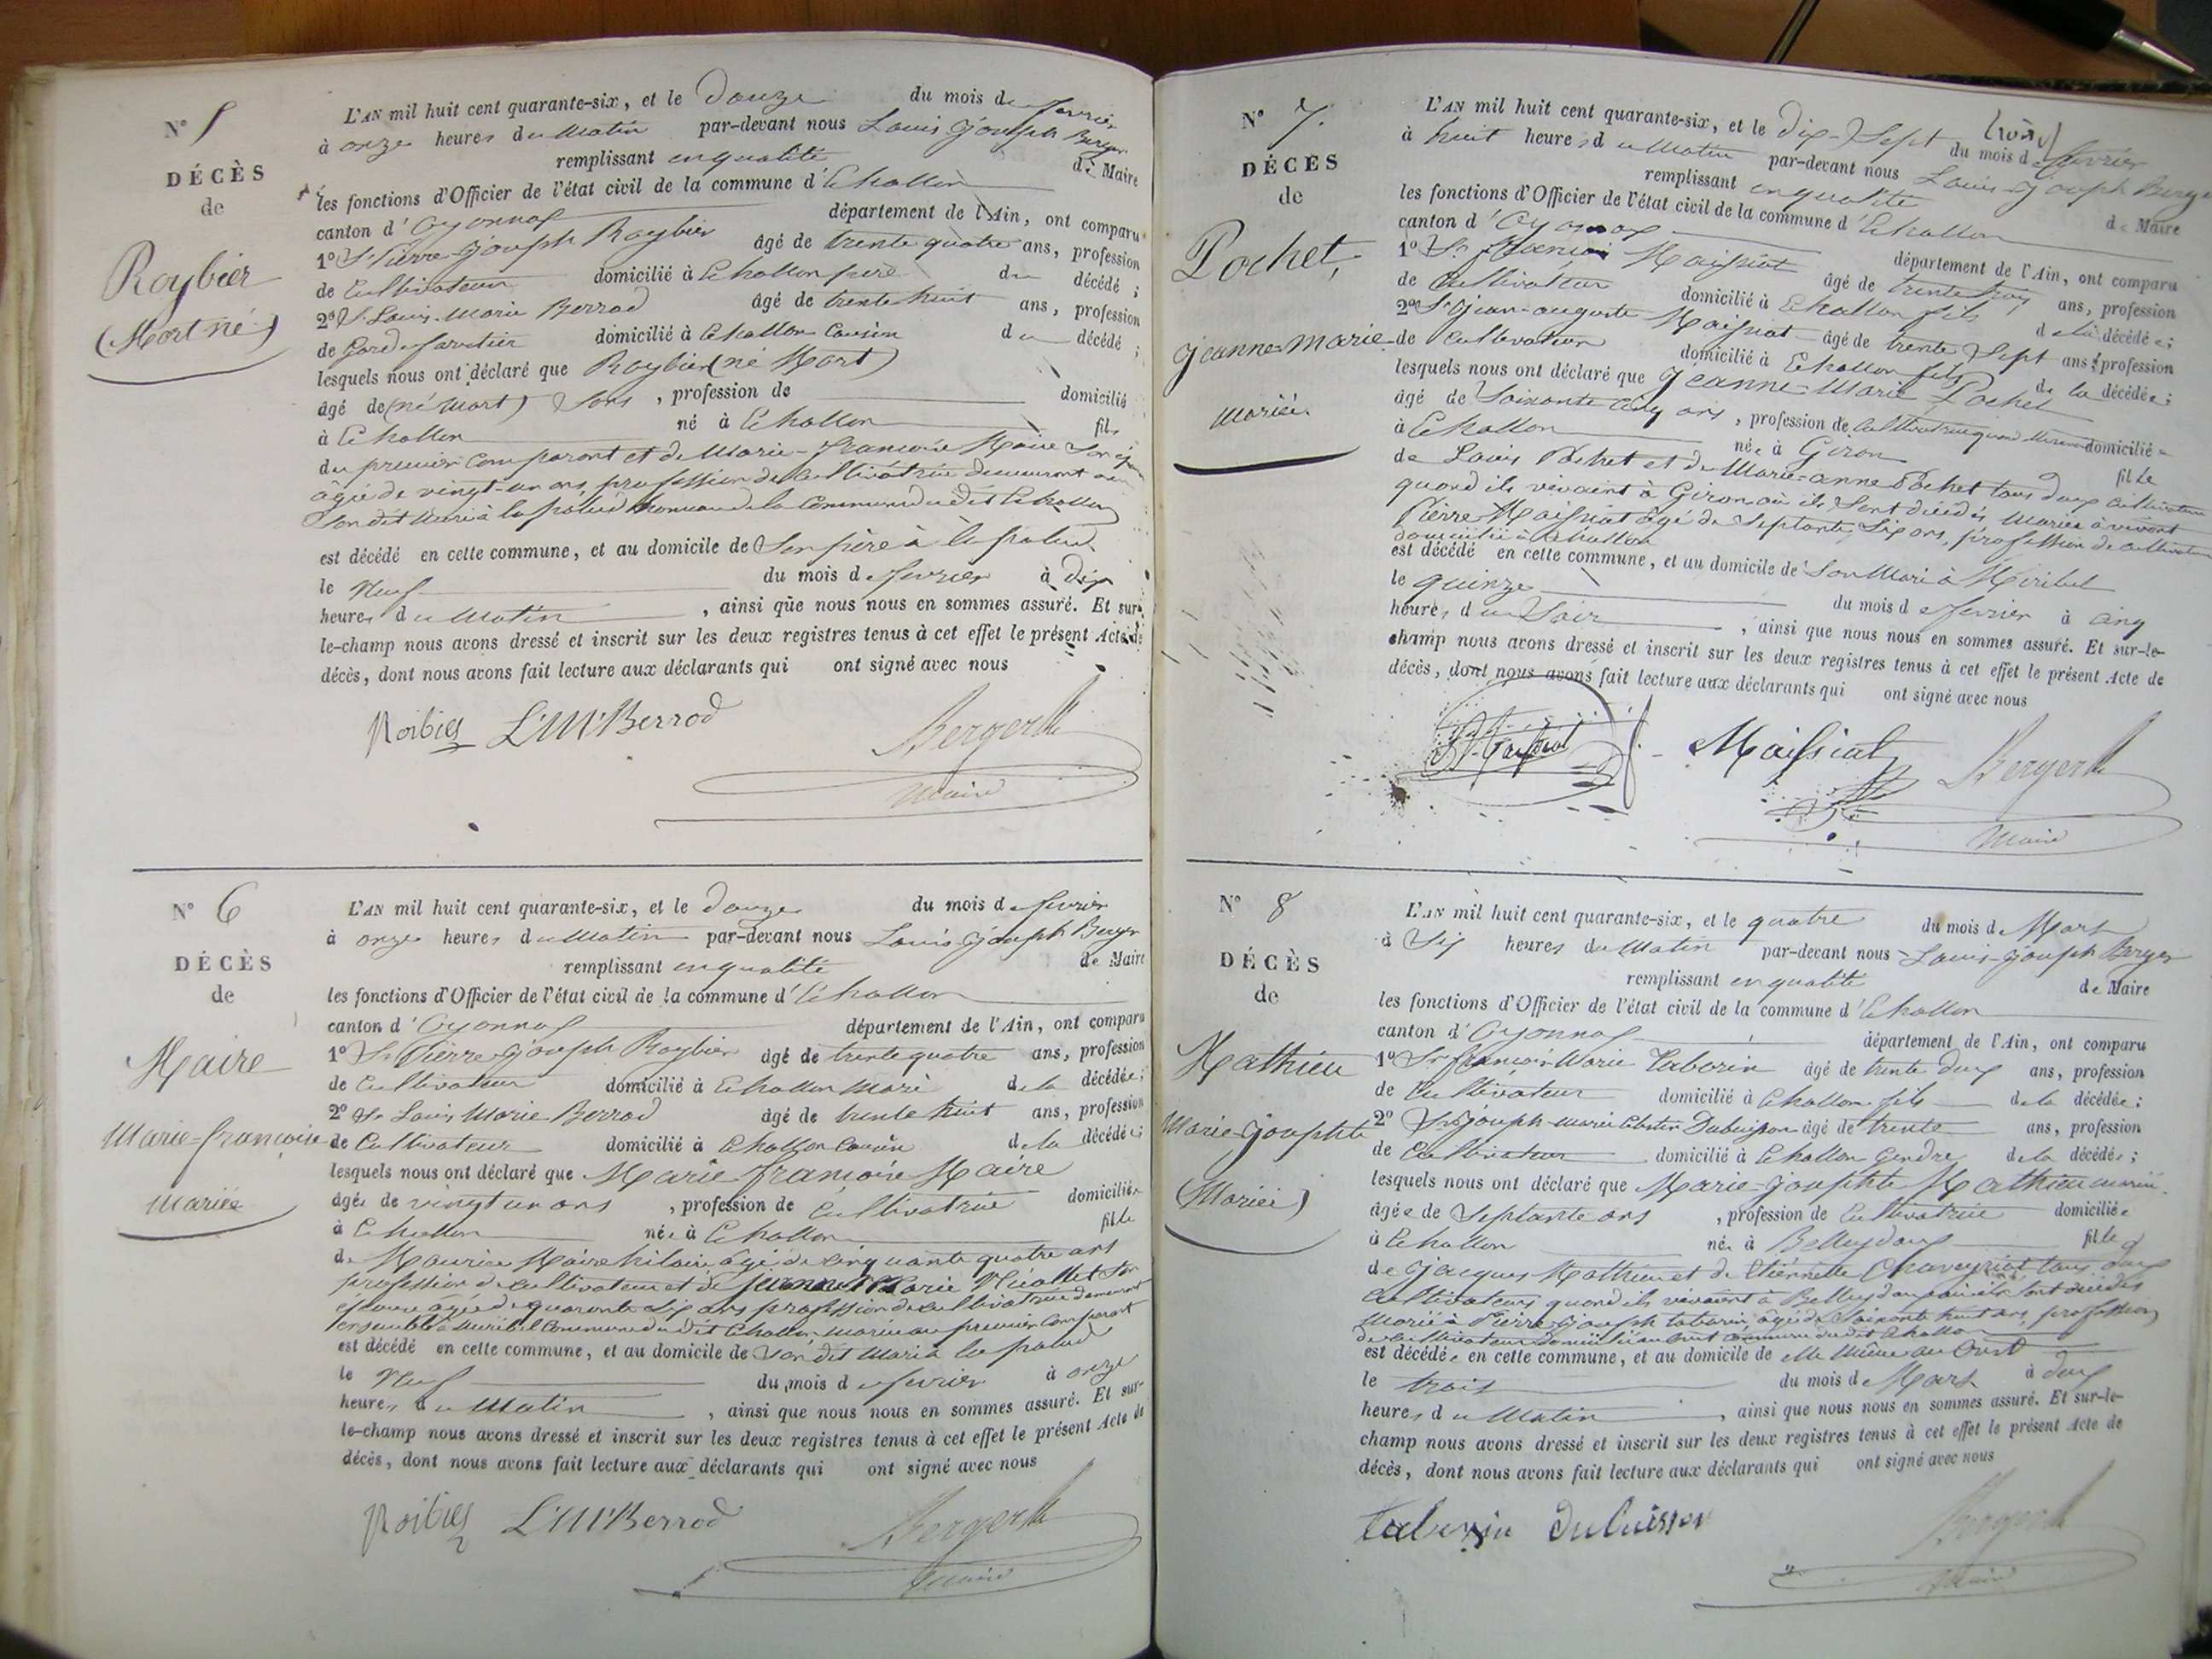 N° 5
DÉCÈS
de
Roybier
(Mort né)
L'AN mil huit cent quarante-six, et le Douze du mois de fevrier
à onze heures du Matin par-devant nous Louis Joseph Berger
remplissant en qualité de Maire
les fonctions d'Officier de l'état civil de la commune d'Echallon
canton d'Oyonnax département de l'Ain, ont comparu
1° Sr Pierre Joseph Roybier âgé de trente quatre ans, profession
de Cultivateur domicilié à Echallon père du décédé;
2° Sr Louis Marie Berrod âgé de trente huit ans, profession
de Garde forestier domicilié à Echallon Cousin du décédé;
lesquels nous ont déclaré que Roybier (né Mort)
âgé de (né Mort) Sans, profession de domicilié
à Echallon né à Echallon fils
du premier Comparant et de Marie-françoise Maire Son épouse
âgée de vingt-un ans, profession de Cultivatrice demeurant avec
Son dit Mari à la palud hameau de la Commune du dit Echallon
est décédé en cette commune, et au domicile de Son père à la palud
le Neuf du mois de fevrier à Dix
heures du Matin, ainsi que nous nous en sommes assuré. Et sur-
le-champ nous avons dressé et inscrit sur les deux registres tenus à cet effet le présent Acte de
décès, dont nous avons fait lecture aux déclarants qui ont signé avec nous
Roibier L M Berrod Berger
Maire
N° 6
DÉCÈS
de
Maire
Marie-françoise
Mariée
L'AN mil huit cent quarante-six, et le Douze du mois de fevrier
à onze heures du Matin par-devant nous Louis Joseph Berger
remplissant en qualité de Maire
les fonctions d'Officier de l'état civil de la commune d'Echallon
canton d'Oyonnax département de l'Ain, ont comparu
1° Sr Pierre Joseph Roybier âgé de trente quatre ans, profession
de Cultivateur domicilié à Echallon Mari de la décédée;
2° Sr Louis Marie Berrod âgé de trente huit ans, profession
de Cultivateur domicilié à Echallon Cousin de la décédée;
lesquels nous ont déclaré que Marie françoise Maire
âgée de vingt un ans, profession de Cultivatrice domiciliée
à Echallon née à Echallon fille
de Maurice Maire hilaire, âgé de Cinquante quatre ans
profession de Cultivateur et de Jeanne Marie Nicollet Son
épouse âgée de quarante Six ans profession de Cultivatrice demeurant
ensemble à Miribel Commune du dit Echallon, Mariée au premier Comparant
est décédé en cette commune, et au domicile de Son dit Mari à la palud
le Neuf du mois de fevrier à onze
heures du Matin, ainsi que nous nous en sommes assuré. Et sur-
le-champ nous avons dressé et inscrit sur les deux registres tenus à cet effet le présent Acte de
décès, dont nous avons fait lecture aux déclarants qui ont signé avec nous
Roibier L M Berrod Berger
Maire
N° 7.
DÉCÈS
de
Pochet,
Jeanne-Marie
Mariée.
L'AN mil huit cent quarante-six, et le Dix-Sept du mois de fevrier
à huit heures du Matin par-devant nous Louis-Joseph Berger
remplissant en qualité de Maire
les fonctions d'Officier de l'état civil de la commune d'Echallon
canton d'Oyonnax département de l'Ain, ont comparu
1° Sr Maissiat âgé de trente trois ans, profession
de Cultivateur domicilié à Echallon fils de la décédée;
2° Sr Jean-auguste Maissiat âgé de trente Sept ans, profession
de Cultivateur domicilié à Echallon fils de la décédée;
lesquels nous ont déclaré que Jeanne-Marie Pochet
âgé de Soixante Cinq ans, profession de Cultivatrice quand domiciliée
à Echallon née à Giron fille
de Louis Pochet et de Marie-anne Pochet tous deux Cultivateurs
quand ils vivaient à Giron où ils Sont décédés, Mariée à vivant
Pierre Maissiat âgé de Septante Six ans, profession de cultivateur
domicilié à Echallon
est décédé en cette commune, et au domicile de Son Mari à Miribel
le quinze du mois de fevrier à Cinq
heures du Soir, ainsi que nous nous en sommes assuré. Et sur-le-
champ nous avons dressé et inscrit sur les deux registres tenus à cet effet le présent Acte de
décès, dont nous avons fait lecture aux déclarants qui ont signé avec nous
Maissiat Maissiat Berger
Maire
N° 8
DÉCÈS
de
Mathieu
Marie-Josephte
(Mariée)
L'AN mil huit cent quarante-six, et le quatre du mois de Mars
à Six heures du Matin par-devant nous Louis-Joseph Berger
remplissant en qualité de Maire
les fonctions d'Officier de l'état civil de la commune d'Echallon
canton d'Oyonnax département de l'Ain, ont comparu
1° Sr françois-Marie Tabarin âgé de trente Deux ans, profession
de Cultivateur domicilié à Echallon fils de la décédée;
2° Sr Joseph-marie Dubuisson âgé de trente ans, profession
de Cultivateur domicilié à Echallon Gendre de la décédée;
lesquels nous ont déclaré que Marie-Josephte Mathieu
âgée de Septante ans, profession de Cultivatrice domiciliée
à Echallon née à Belleydoux fille
de Jacques Mathieu et de Etiennette Chaveyriat tous deux
Cultivateurs quand ils vivaient à Belleydoux où ils Sont décédés
Mariée à Pierre-Joseph tabarin, âgé de Soixante huit ans, profession
de Cultivateur domicilié au Crest commune du dit Echallon
est décédée en cette commune, et au domicile de Elle Même au Crest
le trois du mois de Mars à deux
heures du Matin, ainsi que nous nous en sommes assuré. Et sur-le-
champ nous avons dressé et inscrit sur les deux registres tenus à cet effet le présent Acte de
décès, dont nous avons fait lecture aux déclarants qui ont signé avec nous
tabarin Dubuisson Berger
Maire